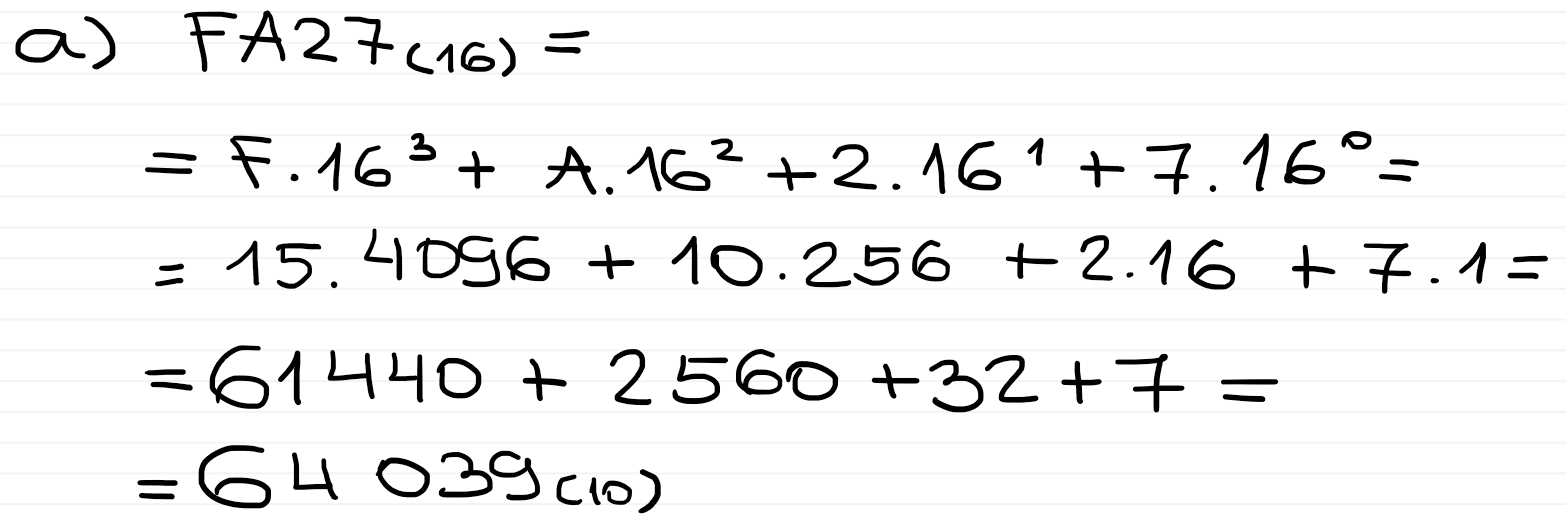 a) FA27₍₁₆₎ =
= F.16³ + A.16² + 2.16¹ + 7.16⁰ =
= 15.4096 + 10.256 + 2.16 + 7.1 =
= 61440 + 2560 + 32 + 7 =
= 64 039₍₁₀₎